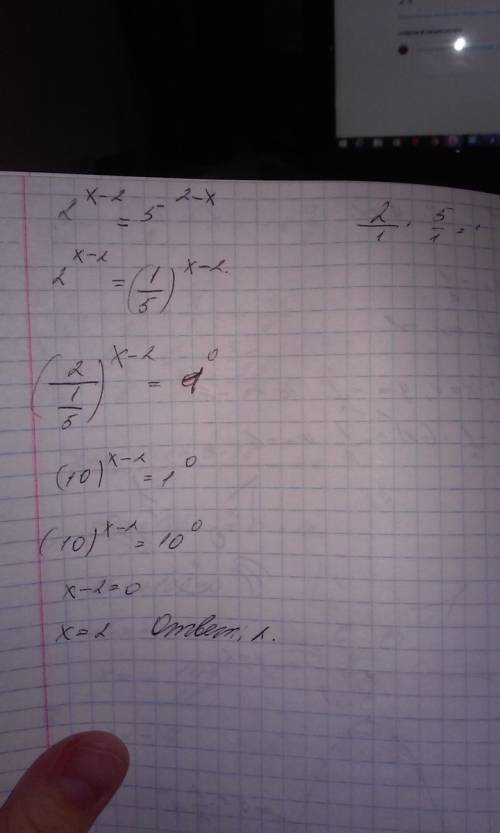 2^{x-2} = 5^{2-x}
2/1 · 5/1 =
2^{x-2} = (1/5)^{x-2}
(2/(1/5))^{x-2} = 1^0
(10)^{x-2} = 1^0
(10)^{x-2} = 10^0
x-2=0
x=2 Ответ: 2.